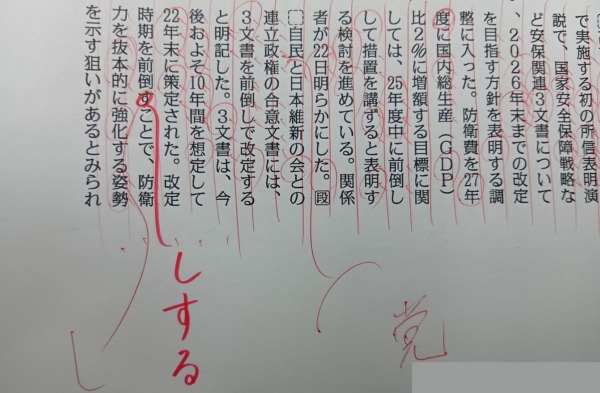 で実施する初の所信表明演
説で、国家安全保障戦略な
ど安保関連3文書について
、2026年末までの改定
を目指す方針を表明する調
整に入った。防衛費を27年
度に国内総生産（GDP）
比2％に増額する目標に関
しては、25年度中に前倒し
して措置を講ずると表明す
る検討を進めている。関係
者が22日明らかにした。段
自民と日本維新の会との
連立政権の合意文書には、
3文書を前倒しで改定する
と明記した。3文書は、今
後およそ10年間を想定して
22年末に策定された。改定
時期を前倒すことで、防衛
力を抜本的に強化する姿勢
を示す狙いがあるとみられ
党
しする
し